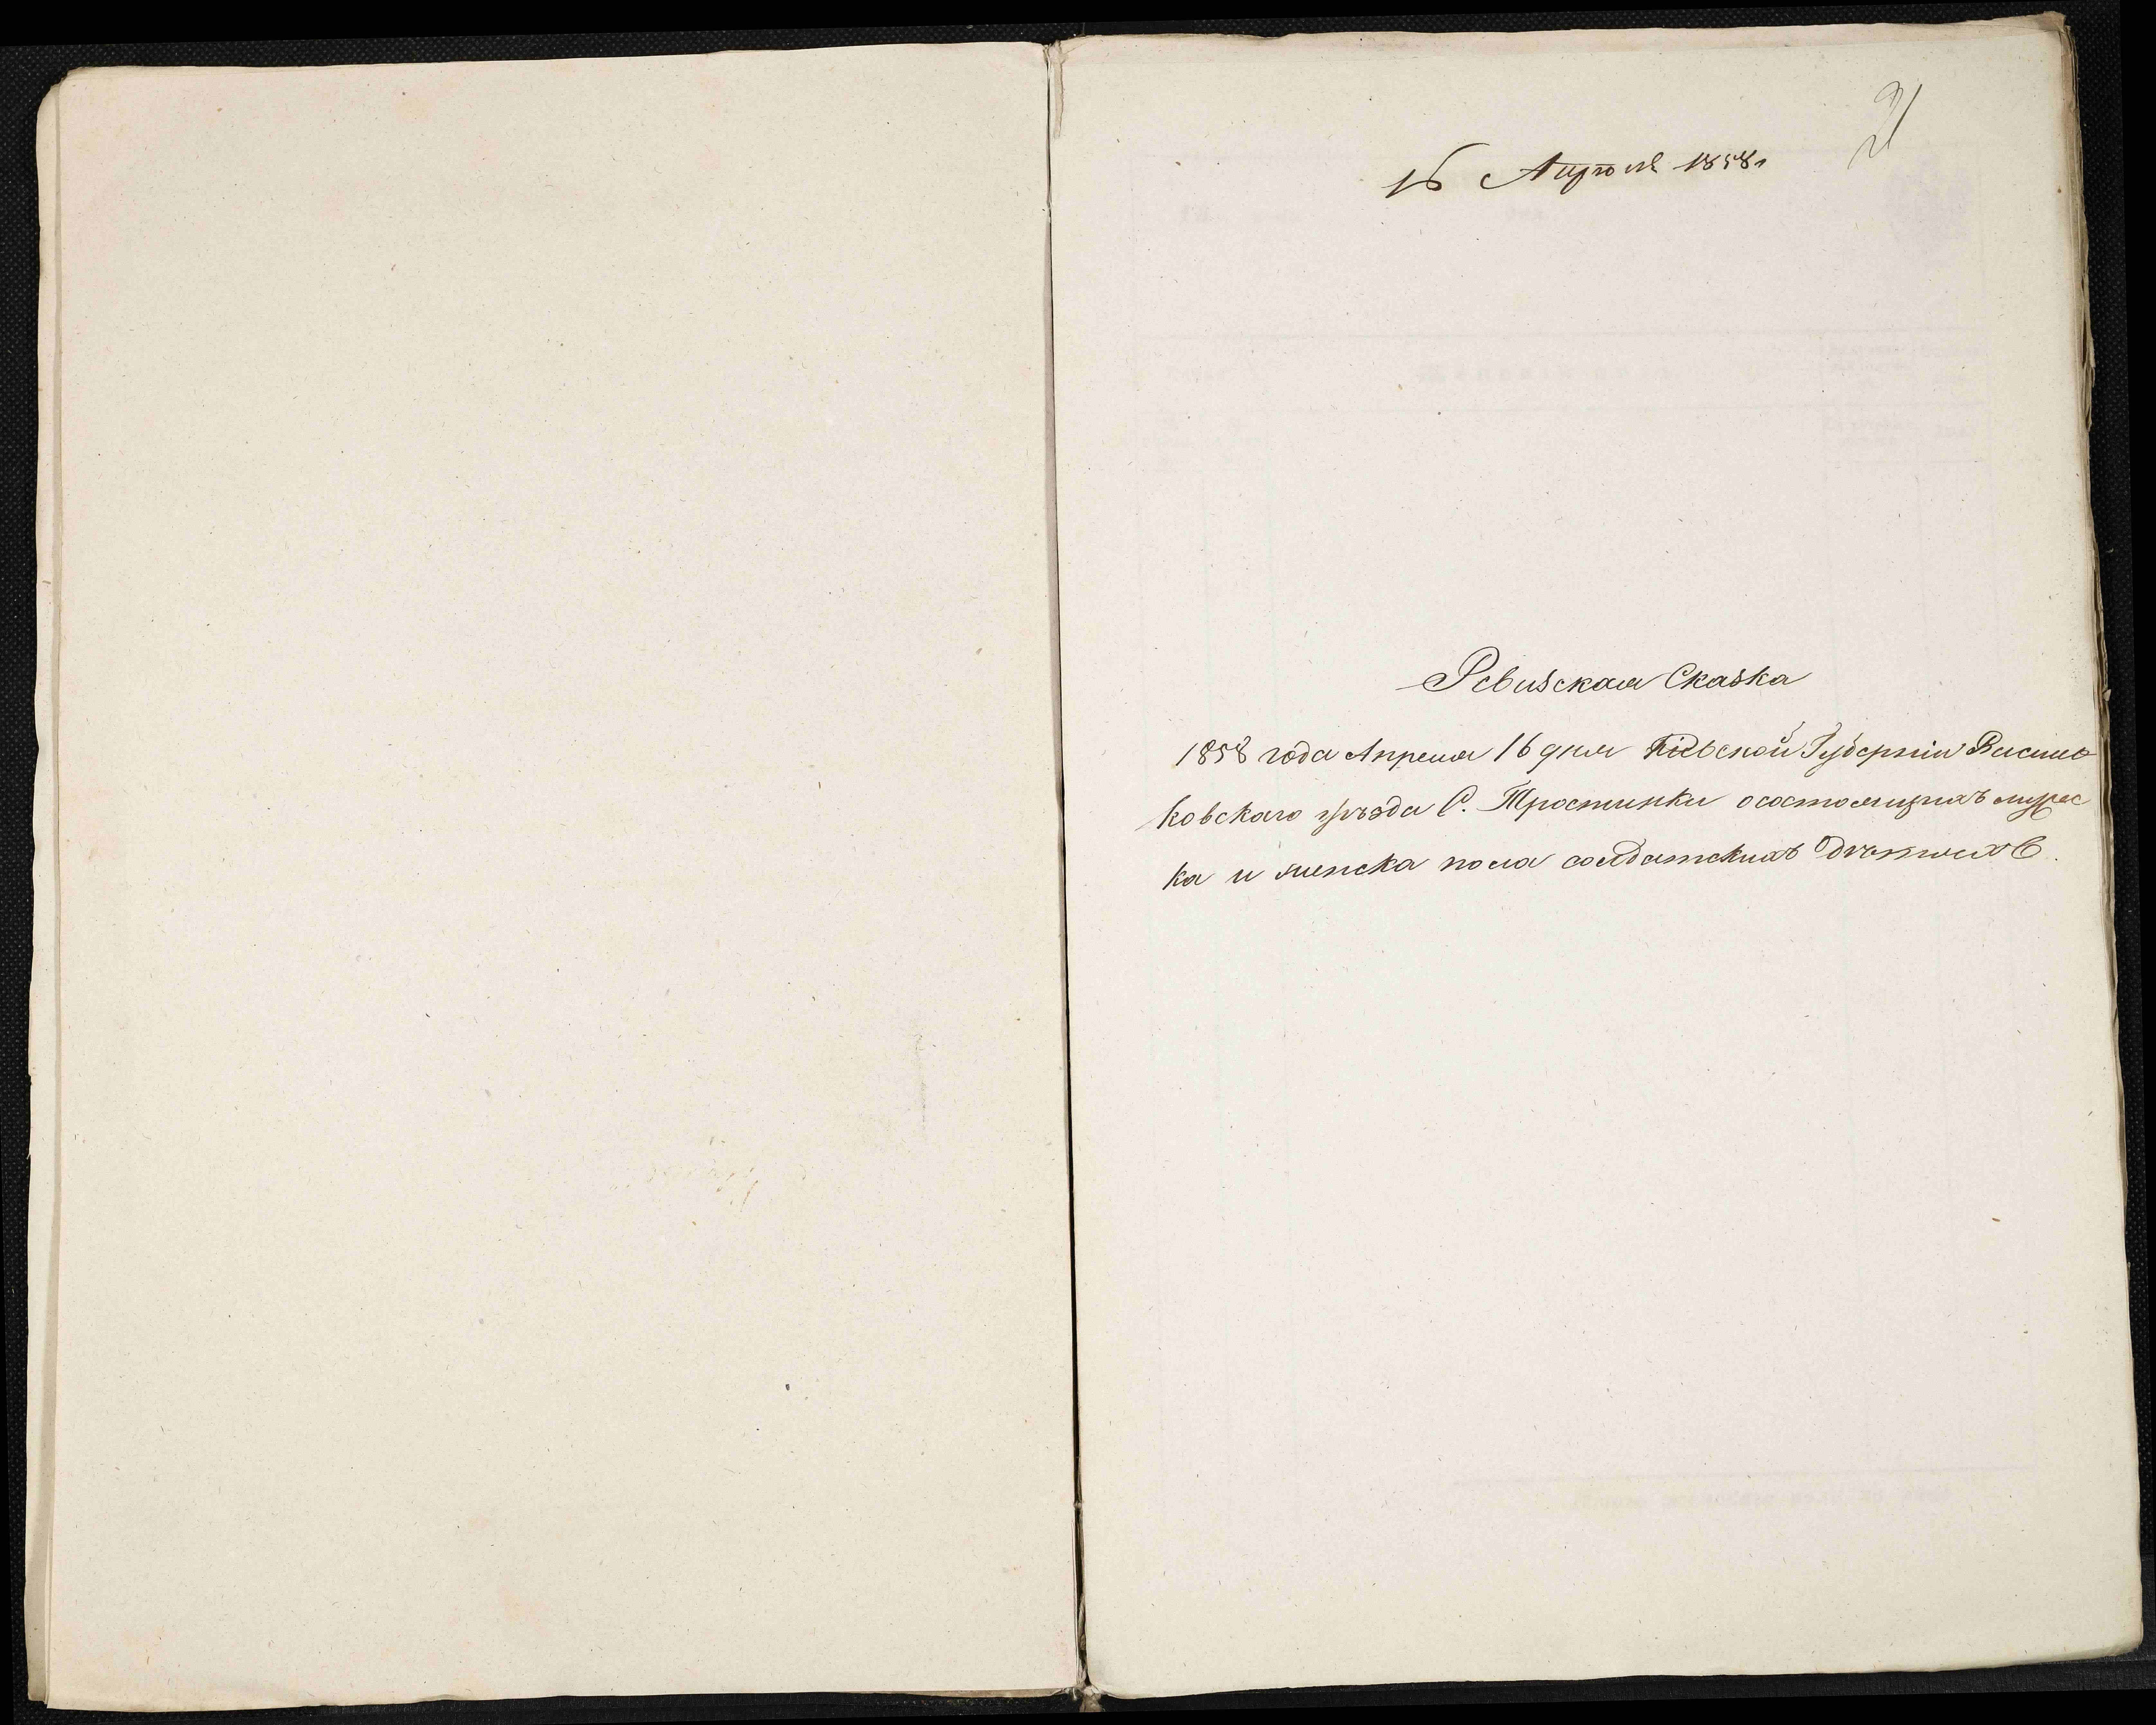 21
16 Апреля 1858г
Ревизская Сказка
1858 года Апреля 16 дня Кіевской Губерніи Василь
ковскаго уѣзда С. Тростинки о состоящихъ мужес
ка и женска пола солдатскихъ дѣтяхъ.